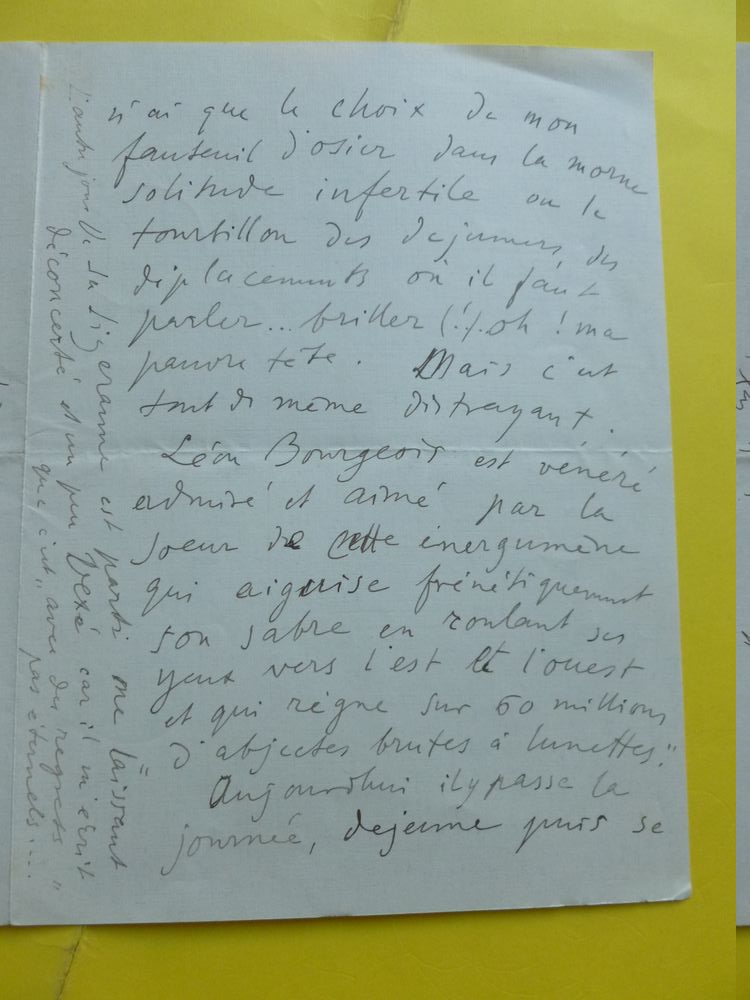 n'ai que le choix de mon
fauteuil d'osier dans la morne
solitude infertile ou le
tourbillon des dejeuners, des
déplacements où il faut
parler... briller (!). oh ! ma
pauvre tête. Mais c'est
tout de même distrayant.
Léon Bourgeois est vénéré
admiré et aimé par la
soeur de cette énergumène
qui aiguise frénétiquement
son sabre en roulant ses
yeux vers l'est et l'ouest
et qui règne sur 60 millions
d'abjectes brutes à lunettes."
Aujourdhui il y passe la
journée, dejeune puis se
L'autre jour de La Sizeranne est parti me laissant
déconcerté et un peu vexé car il m'écrit
que c'est "avec des regrets"
pas éternels....